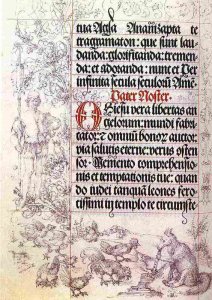 tua Agla Ananizapta te
tragramaton: que sunt lau
danda: glorificanda: tremen
da: et adoranda: nunc et Per
infinita secula seculorũ Amẽ
Pater Noster.
O Ihesu vera libertas an
gelorum: mundi fabri
cator: et omniũ bonoꝝ auctor
via salutis eterne: verus osten
sor. Memento comprehensio
nis et temptationis tue: quan
do iudei tanquã leones fero
cissimi in templo te circumste